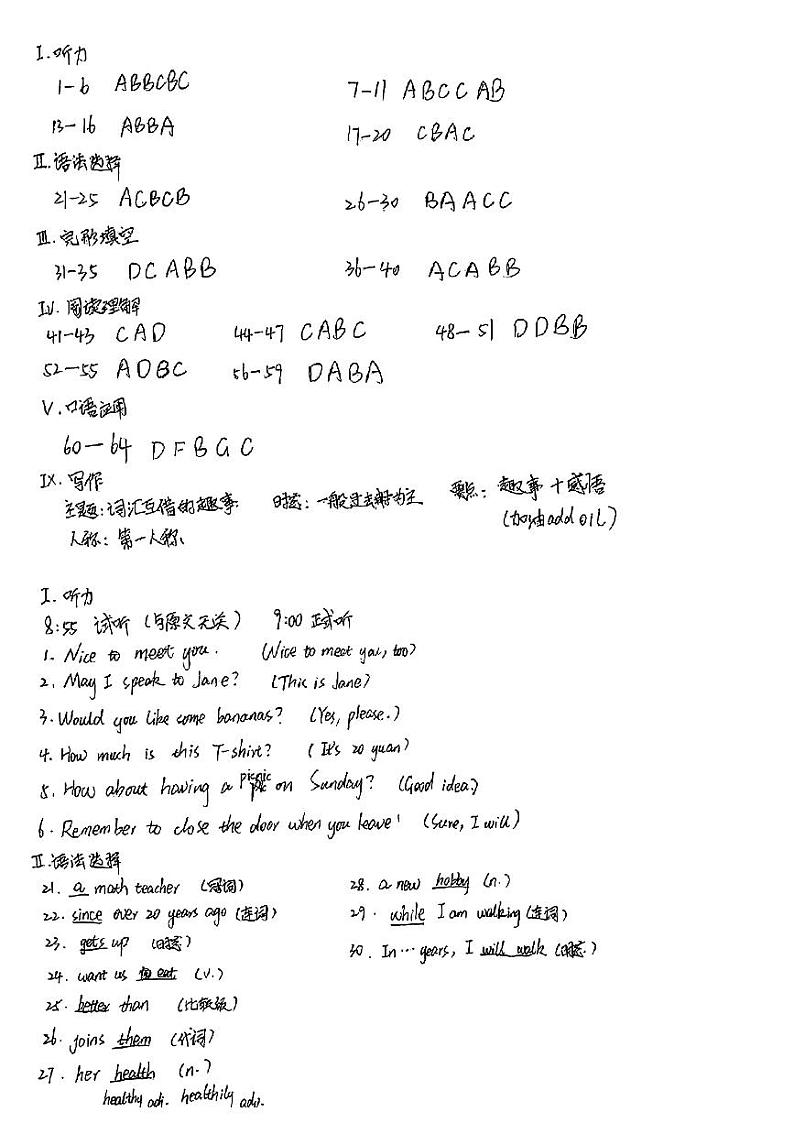 I. 听力
1-6 ABBCBC 7-11 ABCCAB
13-16 ABBA 17-20 CBAC
II. 语法选择
21-25 ACBCB 26-30 BAACC
III. 完形填空
31-35 DCABB 36-40 ACABB
IV. 阅读理解
41-43 CAD 44-47 CABC 48-51 DDBB
52-55 ADBC 56-59 DABA
V. 口语应用
60-64 DFBGC
IX. 写作
主题: 词汇互借的趣事 时态: 一般过去时为主 要点: 趣事+感悟
人称: 第一人称 (加油add oil)
I. 听力
8:55 试听 (与原文无关) 9:00 正式听
1. Nice to meet you. (Nice to meet you, too)
2. May I speak to Jane? (This is Jane)
3. Would you like some bananas? (Yes, please.)
4. How much is this T-shirt? (It's 20 yuan)
5. How about having a picnic on Sunday? (Good idea.)
6. Remember to close the door when you leave! (Sure, I will)
II. 语法选择
21. a math teacher (冠词) 28. a new hobby (n.)
22. since over 20 years ago (连词) 29. while I am walking (连词)
23. gets up (时态) 30. In … years, I will walk (时态.)
24. want us to eat (v.)
25. better than (比较级)
26. joins them (代词)
27. her health (n.)
healthy adj. healthily adv.